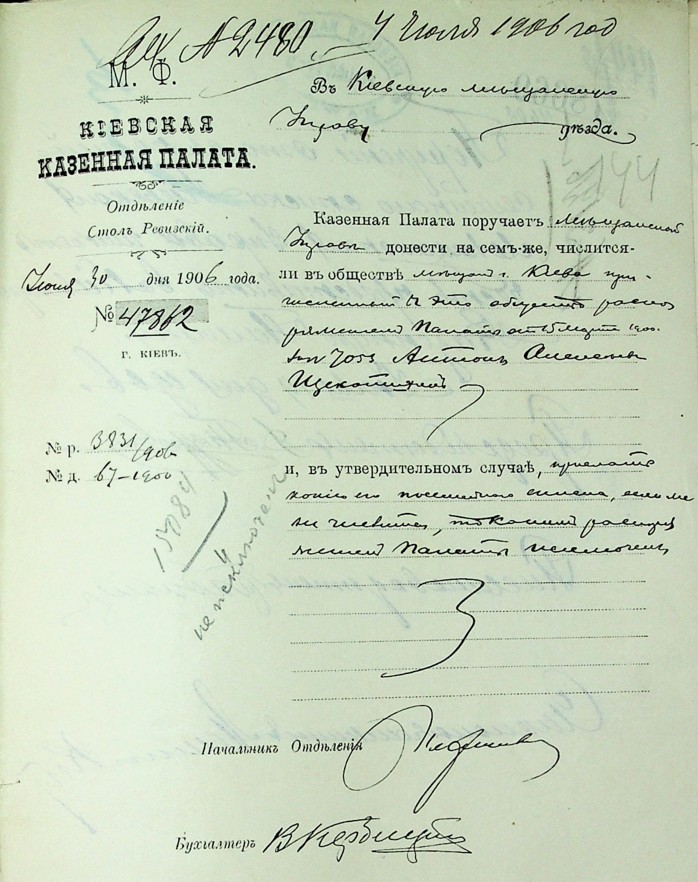 № 2480. 4 Июля 1906 год
М. Ф.
КІЕВСКАЯ
КАЗЕННАЯ ПАЛАТА.
Отдѣленіе
Столъ Ревизскій.
Іюня 30 дня 1906 года.
№ 47862
Г. КІЕВЪ.
№ р. 3831/906
№ д. 67–1900
Въ Кіевскую мѣщанскую
Управу уѣзда.
144
Казенная Палата поручаетъ Мѣщанской
Управѣ донести на семъ-же, числится-
ли въ обществѣ мѣщанъ г. Кіева при-
численный къ этому обществу распо
ряженіемъ Палаты отъ 15 Марта 1900.
за № 7053 Антонъ Алексѣевъ
и, въ утвердительномъ случаѣ, прислать
копію его посемейнаго списка, если же
не числится, то какимъ распоря
женіемъ Палаты исключенъ
15784
не исключенъ
Начальникъ Отдѣленія
Бухгалтеръ